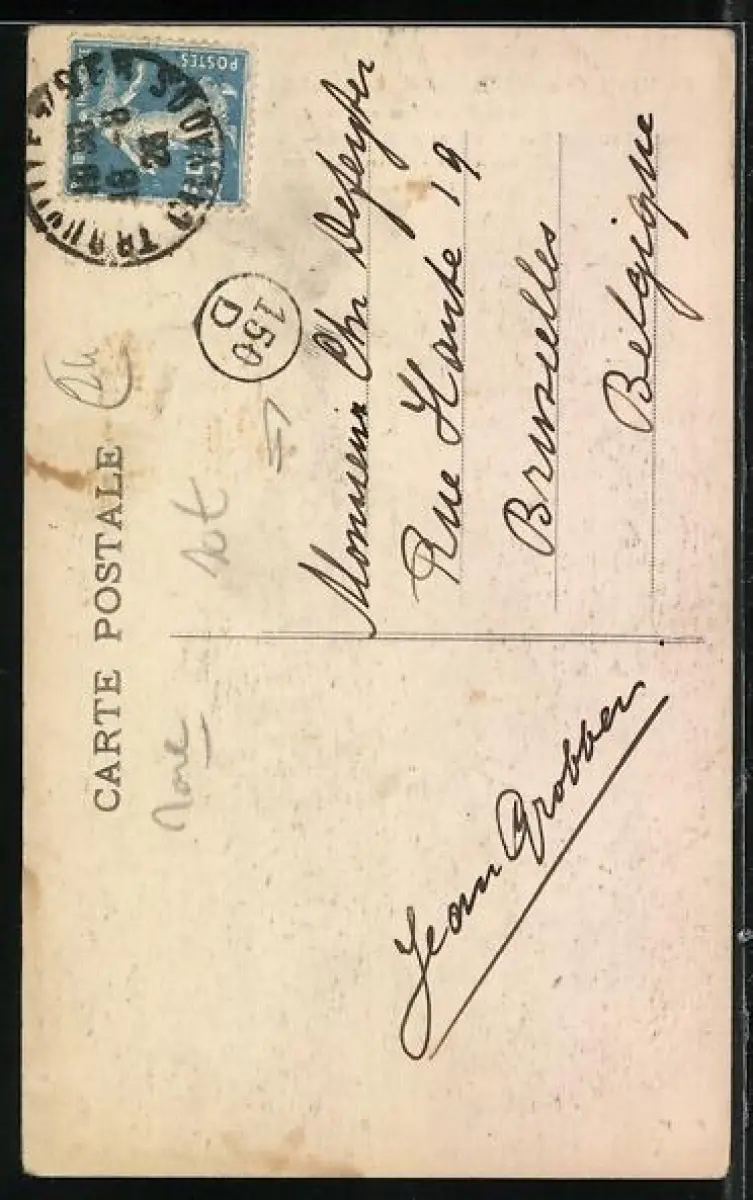 CARTE POSTALE
POSTES
TROUVILLE-SUR-MER
CALVADOS
18 30
18 - 8
150
D
Monsieur Ch.
Rue Haute 19
Bruxelles
Belgique
Jean Grobben
rare